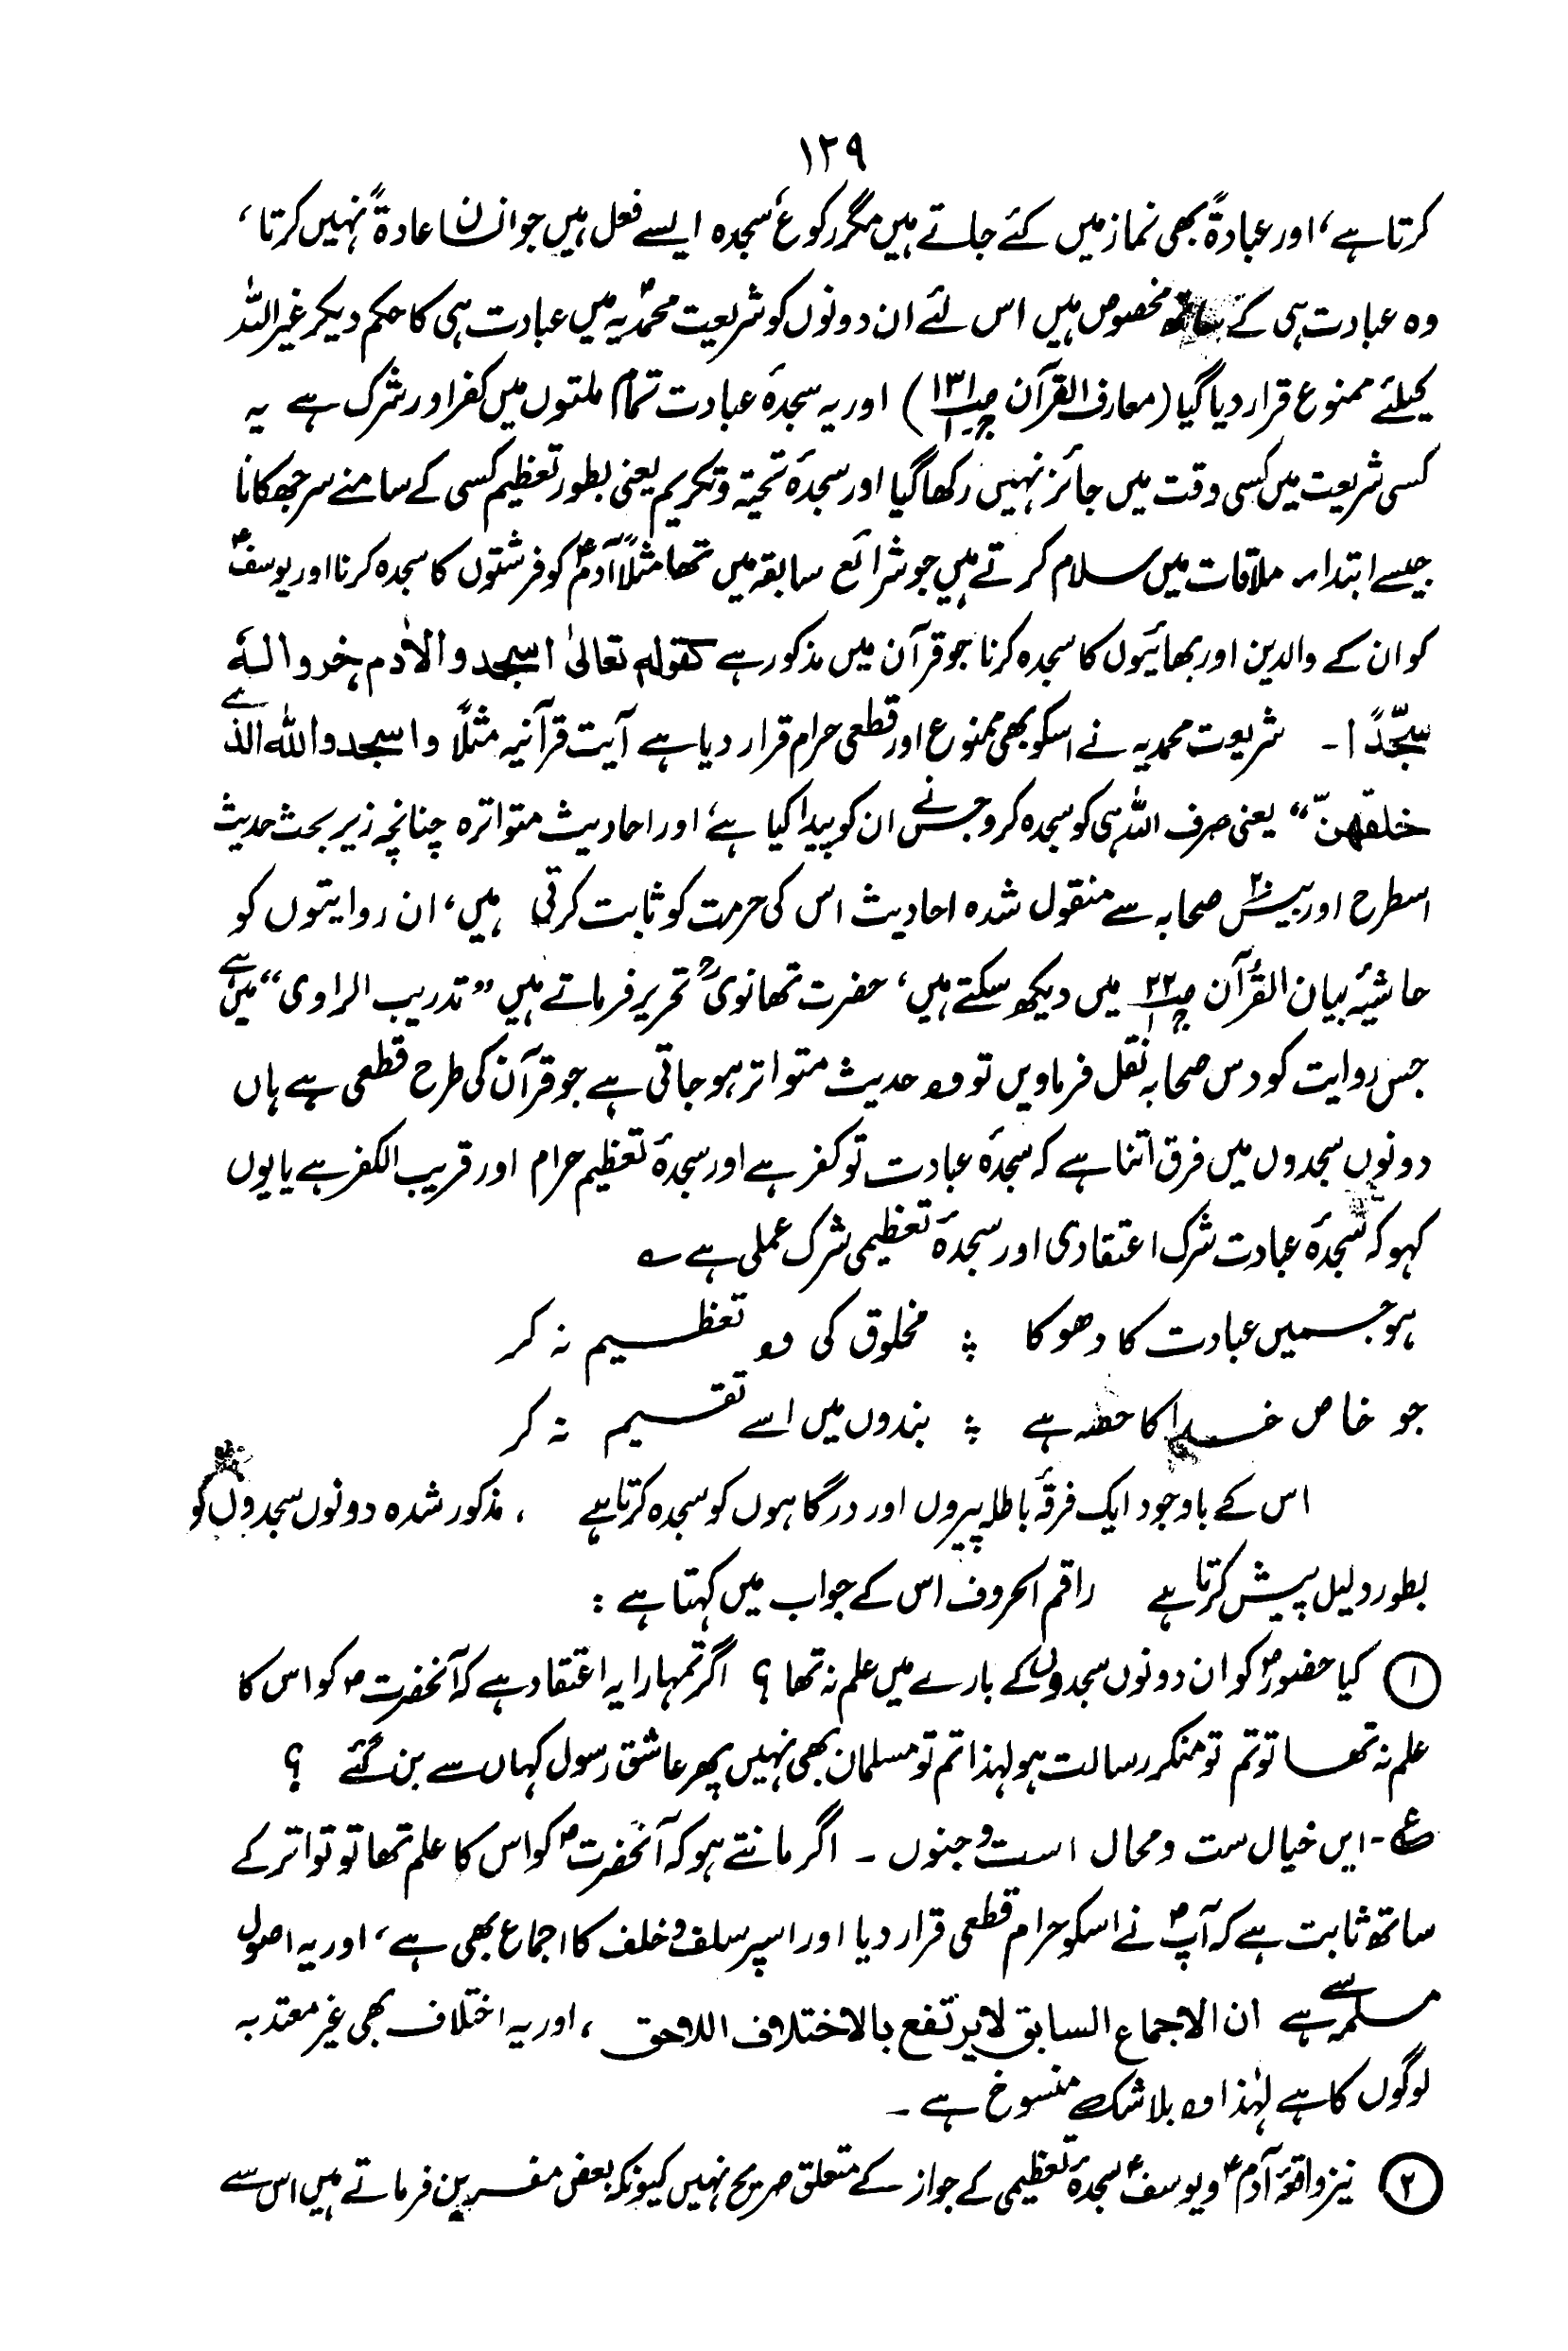 ۱۲۹
کرتا ہے، اور عبادۃً بھی نماز میں کئے جاتے ہیں مگر رکوع، سجدہ ایسے فعل ہیں جو انسان عادۃً نہیں کرتا،
وہ عبادت ہی کے ساتھ مخصوص ہیں اس لئے ان دونوں کو شریعت محمدیہ میں عبادت ہی کا حکم دیکر غیر اللہ
کیلئے ممنوع قرار دیا گیا (معارف القرآن ص۱۳۱ ج۱) اور یہ سجدۂ عبادت تمام ملتوں میں کفر اور شرک ہے یہ
کسی شریعت میں کسی وقت میں جائز نہیں رکھا گیا اور سجدۂ تحیۃ وتکریم یعنی بطور تعظیم کسی کے سامنے سر جھکانا
جیسے ابتداء ملاقات میں سلام کرتے ہیں جو شرائع سابقہ میں تھا مثلاً آدمؑ کو فرشتوں کا سجدہ کرنا اور یوسفؑ
کو ان کے والدین اور بھائیوں کا سجدہ کرنا جو قرآن میں مذکور ہے کقولہ تعالیٰ اسجدوا لاٰدم خروا لہٗ
سجّدًا۔ شریعت محمدیہ نے اسکو بھی ممنوع اور قطعی حرام قرار دیا ہے آیت قرآنیہ مثلًا واسجدوا للہ الذی
خلقھنّ“ یعنی صرف اللہ ہی کو سجدہ کرو جس نے ان کو پیدا کیا ہے، اور احادیث متواترہ چنانچہ زیر بحث حدیث
اسطرح اور بیسؓ صحابہ سے منقول شدہ احادیث اس کی حرمت کو ثابت کرتی ہیں، ان روایتوں کو
حاشیۂ بیان القرآن ص۲۲ ج۱ میں دیکھ سکتے ہیں، حضرت تھانویؒ تحریر فرماتے ہیں ”تدریب الراوی“ میں ہے
جس روایت کو دس صحابہ نقل فرماویں تو وہ حدیث متواتر ہو جاتی ہے جو قرآن کی طرح قطعی ہے ہاں
دونوں سجدوں میں فرق اتنا ہے کہ سجدۂ عبادت تو کفر ہے اور سجدۂ تعظیم حرام اور قریب الکفر ہے یا یوں
کہو کہ سجدۂ عبادت شرک اعتقادی اور سجدۂ تعظیمی شرک عملی ہے ؎
ہو جسمیں عبادت کا دھوکا ؛ مخلوق کی وہ تعظیم نہ کر
جو خاص خدا کا حصہ ہے ؛ بندوں میں اسے تقسیم نہ کر
اس کے باوجود ایک فرقۂ باطلہ پیروں اور درگاہوں کو سجدہ کرتا ہے ، مذکور شدہ دونوں سجدوں کو
بطور دلیل پیش کرتا ہے راقم الحروف اس کے جواب میں کہتا ہے :
① کیا حضورؐ کو ان دونوں سجدوں کے بارے میں علم نہ تھا ؟ اگر تمہارا یہ اعتقاد ہے کہ آنحضرتؐ کو اس کا
علم نہ تھا تو تم تو منکر رسالت ہو لہذا تم تو مسلمان بھی نہیں پھر عاشق رسول کہاں سے بن گئے ؟
ع۔ ایں خیال ست و محال است و جنوں ۔ اگر مانتے ہو کہ آنحضرتؐ کو اس کا علم تھا تو تواتر کے
ساتھ ثابت ہے کہ آپؐ نے اسکو حرام قطعی قرار دیا اور اسپر سلف و خلف کا اجماع بھی ہے، اور یہ اصول
مسلمہ سے ہے ان الاجماع السابق لا یرتفع بالاختلاف اللاحق ، اور یہ اختلاف بھی غیر معتد بہ
لوگوں کا ہے لہٰذا وہ بلا شک منسوخ ہے ۔
② نیز واقعۂ آدمؑ و یوسفؑ سجدۂ تعظیمی کے جواز کے متعلق صریح نہیں کیونکہ بعض مفسرین فرماتے ہیں اس سے